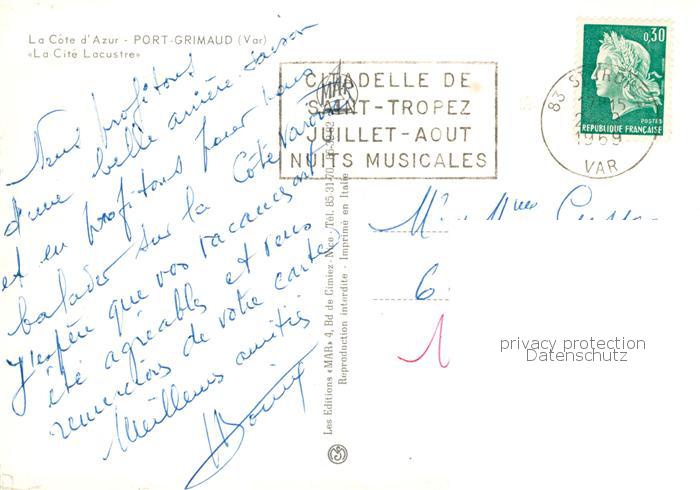 La Côte d'Azur - PORT-GRIMAUD (Var)
«La Cité Lacustre»
Nous profitons
d'une belle arrière saison
et en profitons pour nous
balader sur la Côte Varoise
J'espère que vos vacances ont
été agréables et vous
remercions de votre carte
Meilleures amitiés
CITADELLE DE
SAINT-TROPEZ
JUILLET-AOUT
NUITS MUSICALES
0,30
POSTES
REPUBLIQUE FRANÇAISE
83
1969
VAR
Les Editions «MAR» 4, Bd de Cimiez - Nice - Tél. 85-31-70
Reproduction interdite - Imprimé en Italie
MAR
6
1
privacy protection
Datenschutz